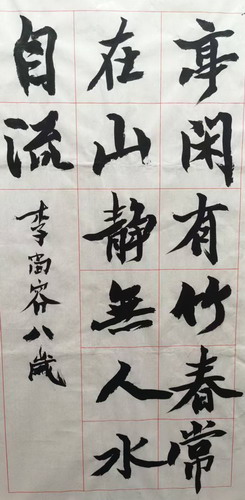 亭闲有竹春常
在山靜無人水
自流
李尚容八歲